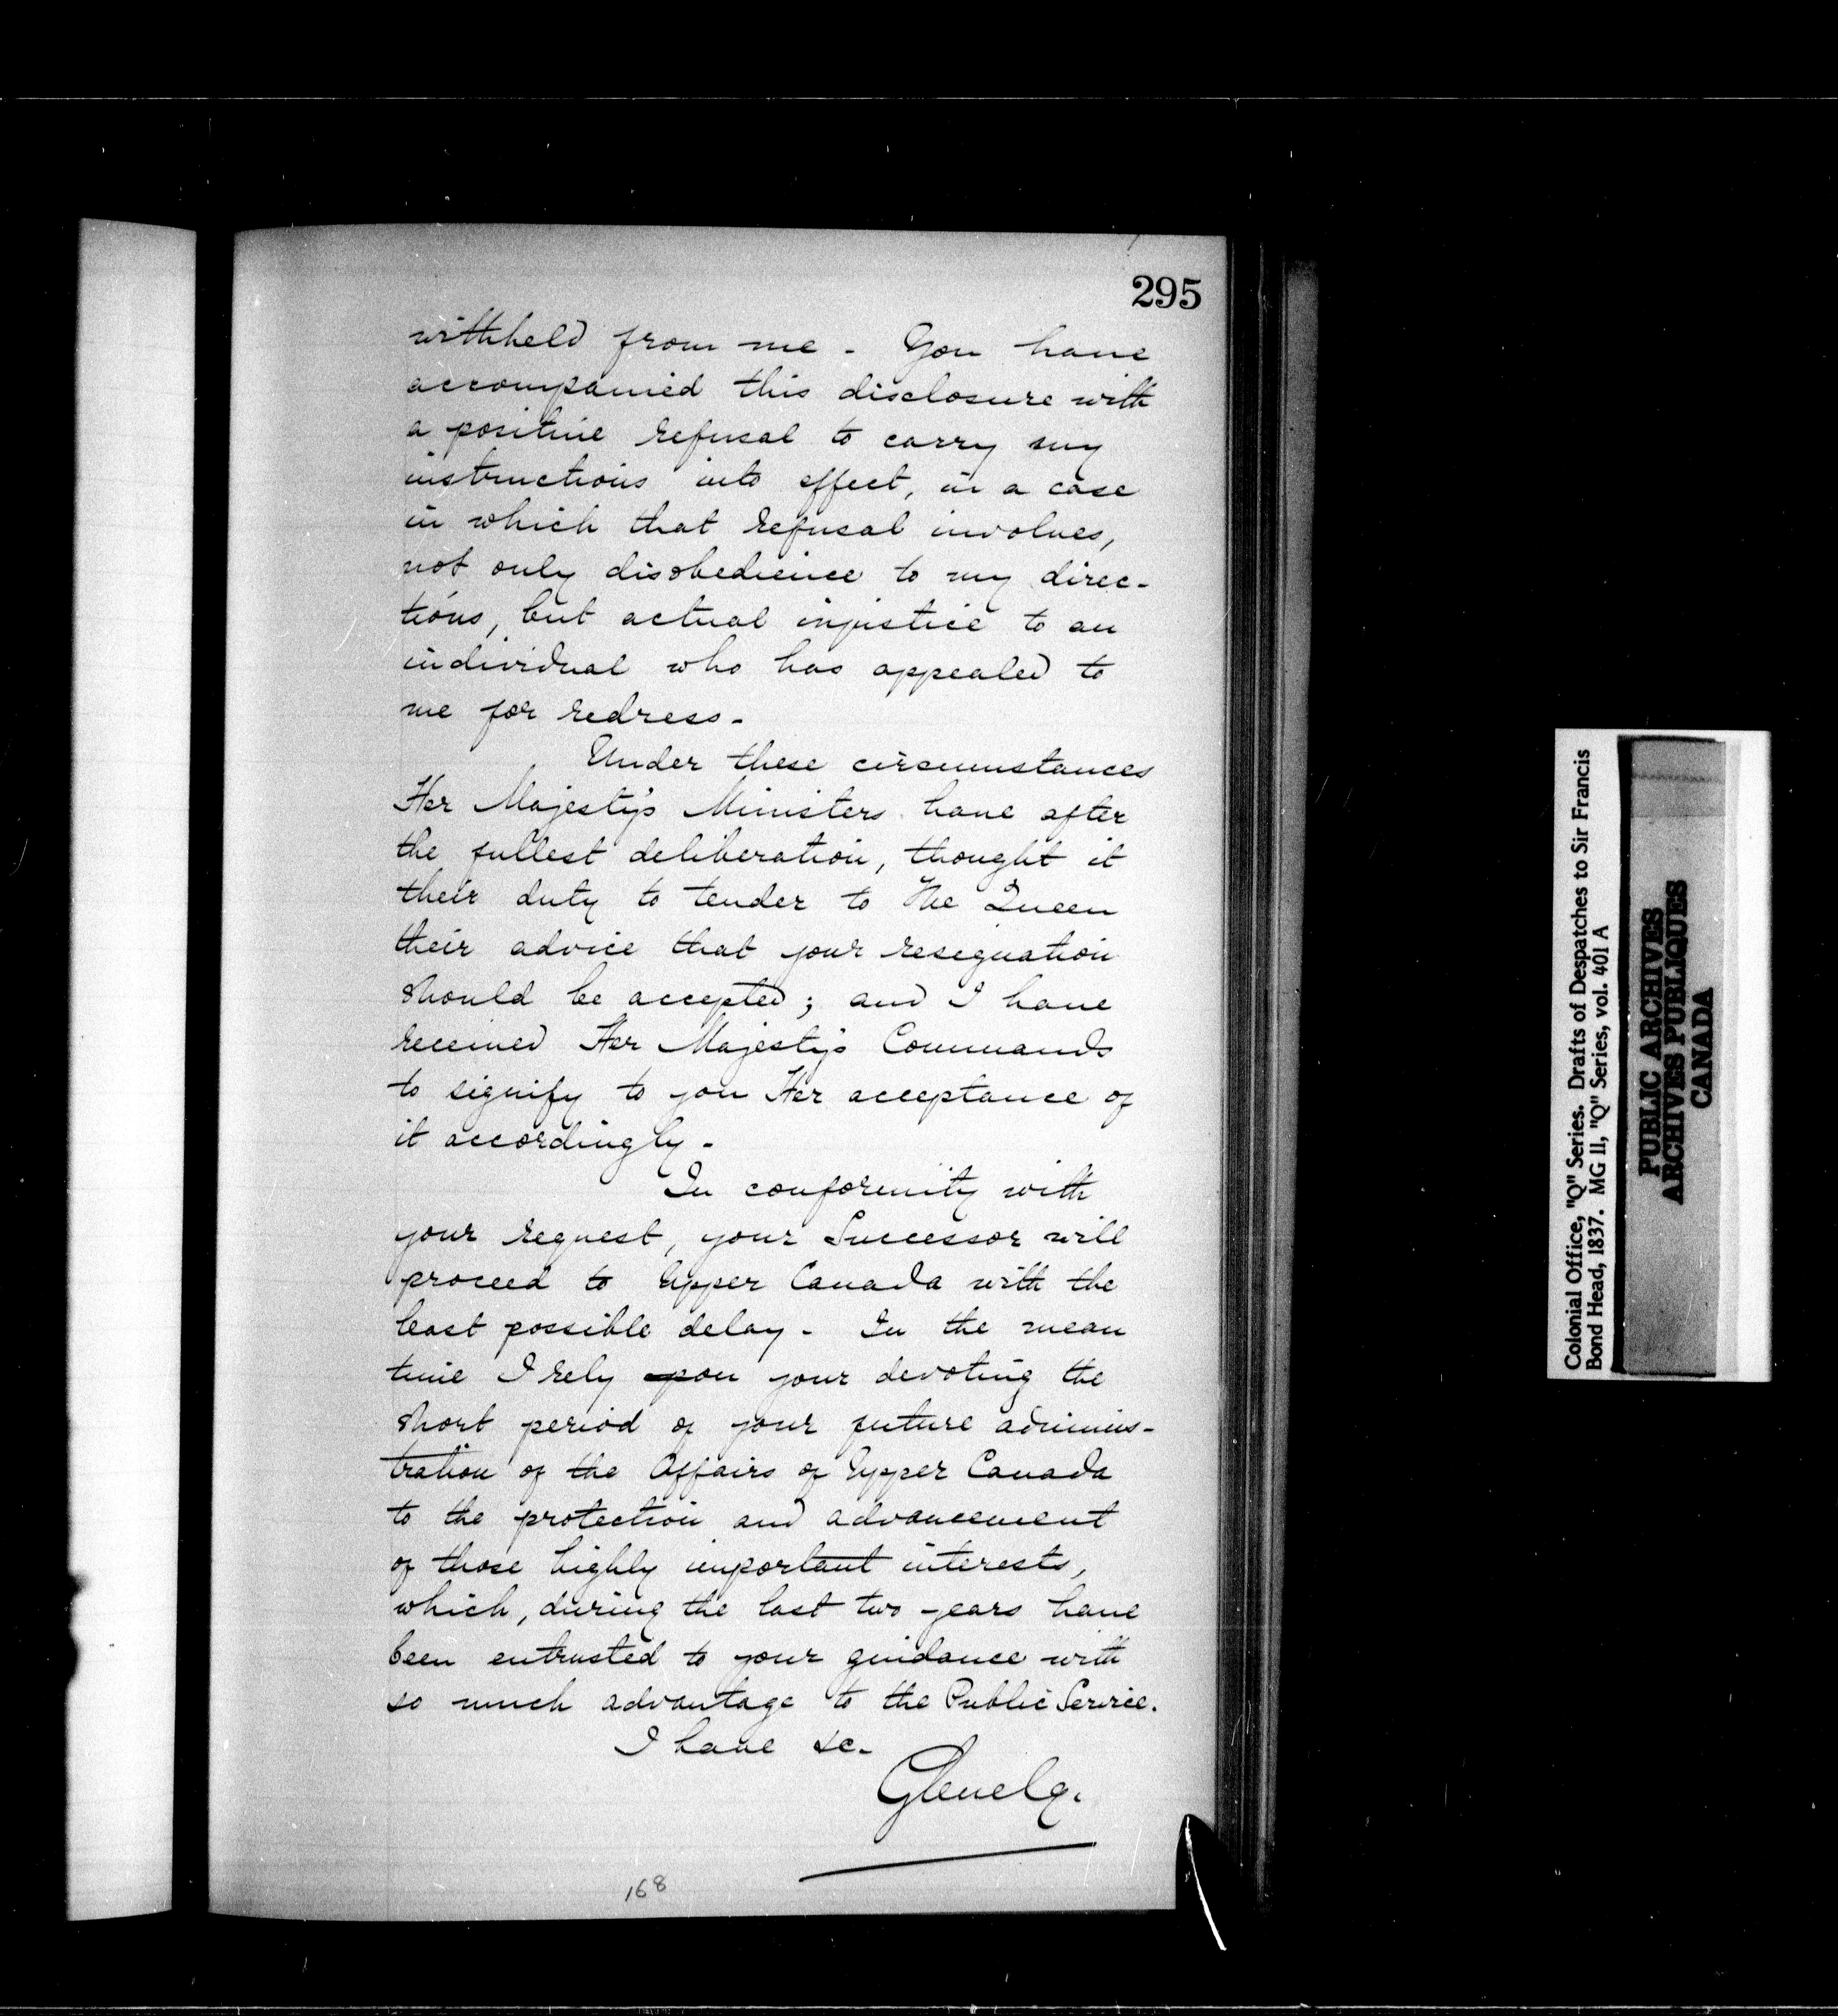 295
withheld from me - You have
accompanied this disclosure with
a positive refusal to carry my
instructions into effect, in a case
in which that refusal involves,
not only disobedience to my direc-
tions, but actual injustice to an
individual who has appealed to
me for redress -
Under these circumstances
Her Majesty's Ministers have after
the fullest deliberation, thought it
their duty to tender to The Queen
their advice that your resignation
should be accepted; and I have
received Her Majesty's Commands
to signify to you Her acceptance of
it accordingly -
In conformity with
your request, your Successor will
proceed to Upper Canada with the
least possible delay - In the mean
time I rely upon your devoting the
short period of your future adminis-
tration of the Affairs of Upper Canada
to the protection and advancement
of those highly important interests,
which, during the last two years have
been entrusted to your guidance with
so much advantage to the Public Service.
I have &c -
Glenelg.
168
Colonial Office, "Q" Series. Drafts of Despatches to Sir Francis
Bond Head, 1837. MG 11, "Q" Series, vol. 401 A
PUBLIC ARCHIVES
ARCHIVES PUBLIQUES
CANADA